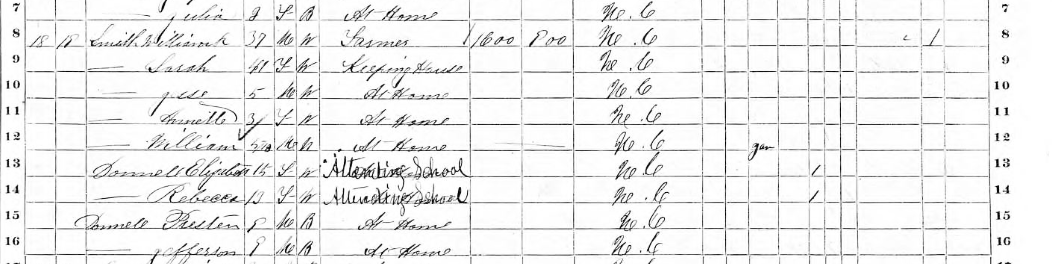 7 — Julia 2 F B At Home No. C 7
8 18 18 Smith William 37 M W Farmer 1600 800 No. C 1 8
9 — Sarah 41 F W Keeping House No. C 9
10 — Jesse 5 M W At Home No. C 10
11 — Annette 3 F W At Home No. C 11
12 — William M W At Home No. C Jan 12
13 Donnell Elizabeth 15 F W Attending School No. C 1 13
14 — Rebecca 13 F W Attending School No. C 1 14
15 Donnell Preston 8 M B At Home No. C 15
16 — Jefferson 8 M B At Home No. C 16